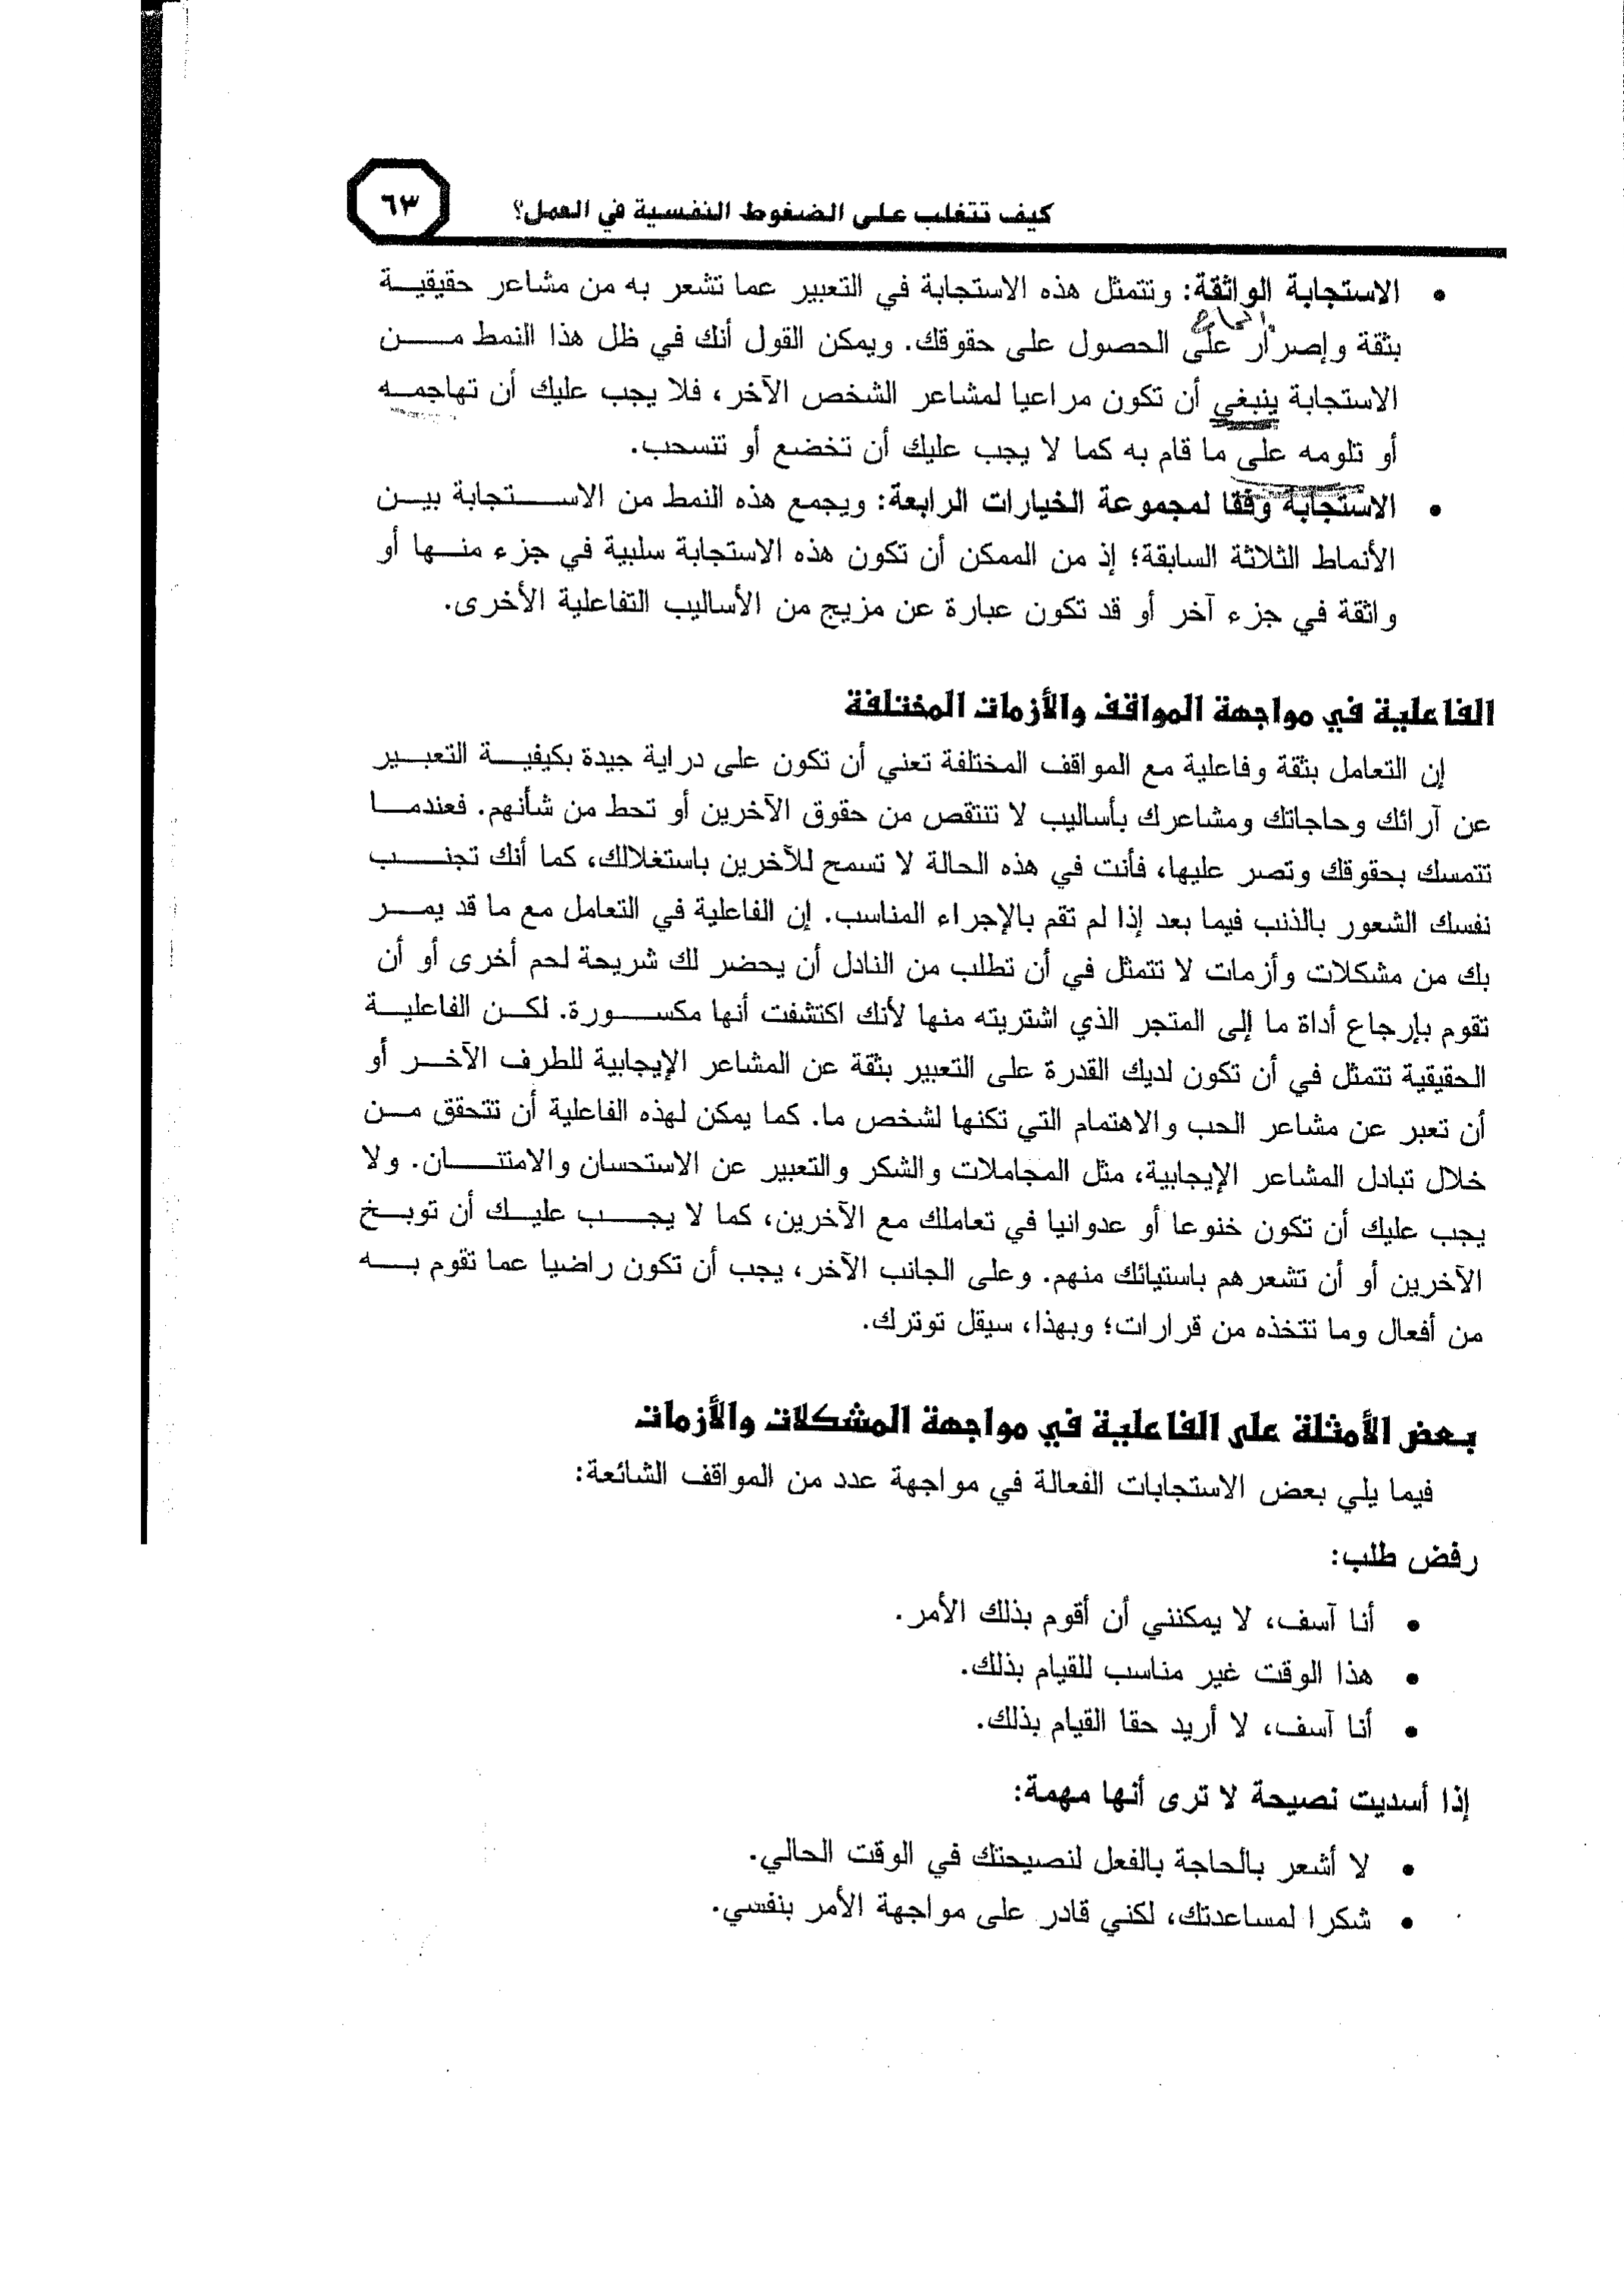 كيف تتغلب على الضغوط النفسية في العمل؟
٦٣
• الاستجابة الواثقة: وتتمثل هذه الاستجابة في التعبير عما تشعر به من مشاعر حقيقية
بثقة وإصرار على الحصول على حقوقك. ويمكن القول أنك في ظل هذا النمط من
الاستجابة ينبغي أن تكون مراعيا لمشاعر الشخص الآخر، فلا يجب عليك أن تهاجمه
أو تلومه على ما قام به كما لا يجب عليك أن تخضع أو تنسحب.
• الاستجابة وفقا لمجموعة الخيارات الرابعة: ويجمع هذه النمط من الاستجابة بين
الأنماط الثلاثة السابقة؛ إذ من الممكن أن تكون هذه الاستجابة سلبية في جزء منها أو
واثقة في جزء آخر أو قد تكون عبارة عن مزيج من الأساليب التفاعلية الأخرى.
الفاعلية في مواجهة المواقف والأزمات المختلفة
إن التعامل بثقة وفاعلية مع المواقف المختلفة تعني أن تكون على دراية جيدة بكيفية التعبير
عن آرائك وحاجاتك ومشاعرك بأساليب لا تنتقص من حقوق الآخرين أو تحط من شأنهم. فعندما
تتمسك بحقوقك وتصر عليها، فأنت في هذه الحالة لا تسمح للآخرين باستغلالك، كما أنك تجنب
نفسك الشعور بالذنب فيما بعد إذا لم تقم بالإجراء المناسب. إن الفاعلية في التعامل مع ما قد يمر
بك من مشكلات وأزمات لا تتمثل في أن تطلب من النادل أن يحضر لك شريحة لحم أخرى أو أن
تقوم بإرجاع أداة ما إلى المتجر الذي اشتريته منها لأنك اكتشفت أنها مكسورة. لكن الفاعلية
الحقيقية تتمثل في أن تكون لديك القدرة على التعبير بثقة عن المشاعر الإيجابية للطرف الآخر أو
أن تعبر عن مشاعر الحب والاهتمام التي تكنها لشخص ما. كما يمكن لهذه الفاعلية أن تتحقق من
خلال تبادل المشاعر الإيجابية، مثل المجاملات والشكر والتعبير عن الاستحسان والامتنان. ولا
يجب عليك أن تكون خنوعا أو عدوانيا في تعاملك مع الآخرين، كما لا يجب عليك أن توبخ
الآخرين أو أن تشعرهم باستيائك منهم. وعلى الجانب الآخر، يجب أن تكون راضيا عما تقوم به
من أفعال وما تتخذه من قرارات؛ وبهذا، سيقل توترك.
بعض الأمثلة على الفاعلية في مواجهة المشكلات والأزمات
فيما يلي بعض الاستجابات الفعالة في مواجهة عدد من المواقف الشائعة:
رفض طلب:
• أنا آسف، لا يمكنني أن أقوم بذلك الأمر.
• هذا الوقت غير مناسب للقيام بذلك.
• أنا آسف، لا أريد حقا القيام بذلك.
إذا أسديت نصيحة لا ترى أنها مهمة:
• لا أشعر بالحاجة بالفعل لنصيحتك في الوقت الحالي.
• شكرا لمساعدتك، لكني قادر على مواجهة الأمر بنفسي.